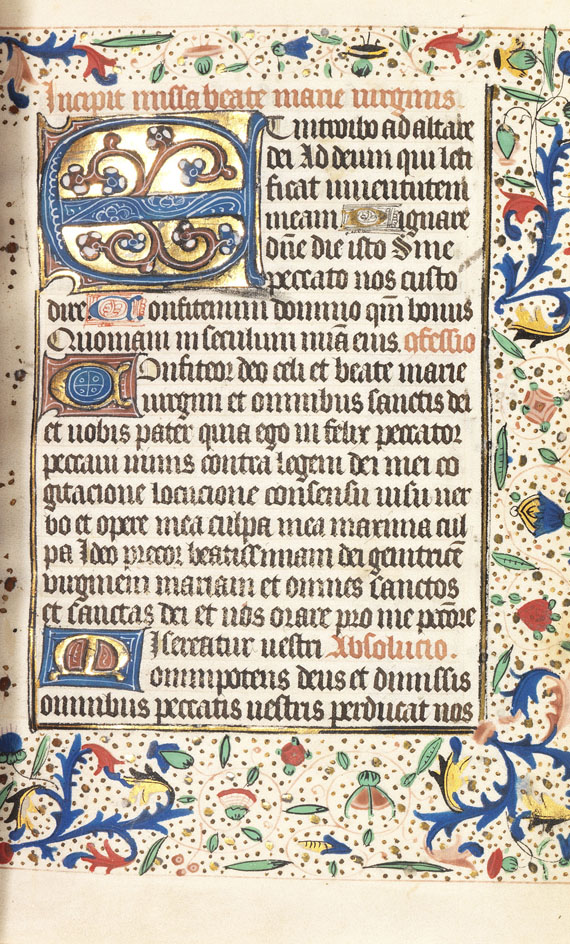 Incipit missa beate marie virginis.
Et introibo ad altare
dei Ad deum qui leti
ficat iuuentutem
meam Dignare
dn̄e die isto Sine
peccato nos custo
dire Confitemini domino qm̄ bonus
Quoniam in seculum mīa eius. ɔfessio
Confiteor deo celi et beate marie
uirgini et omnibus sanctis dei
et uobis pater quia ego infelix peccator
peccaui nimis contra legem dei mei co
gitacione locucione consensu uisu uer
bo et opere mea culpa mea maxima cul
pa Ideo precor beatissimam dei genitricē
uirginem mariam et omnes sanctos
et sanctas dei et uos orare pro me pctōre
Misereatur uestri Absolucio.
omnipotens deus et dimissis
omnibus peccatis uestris perducat nos